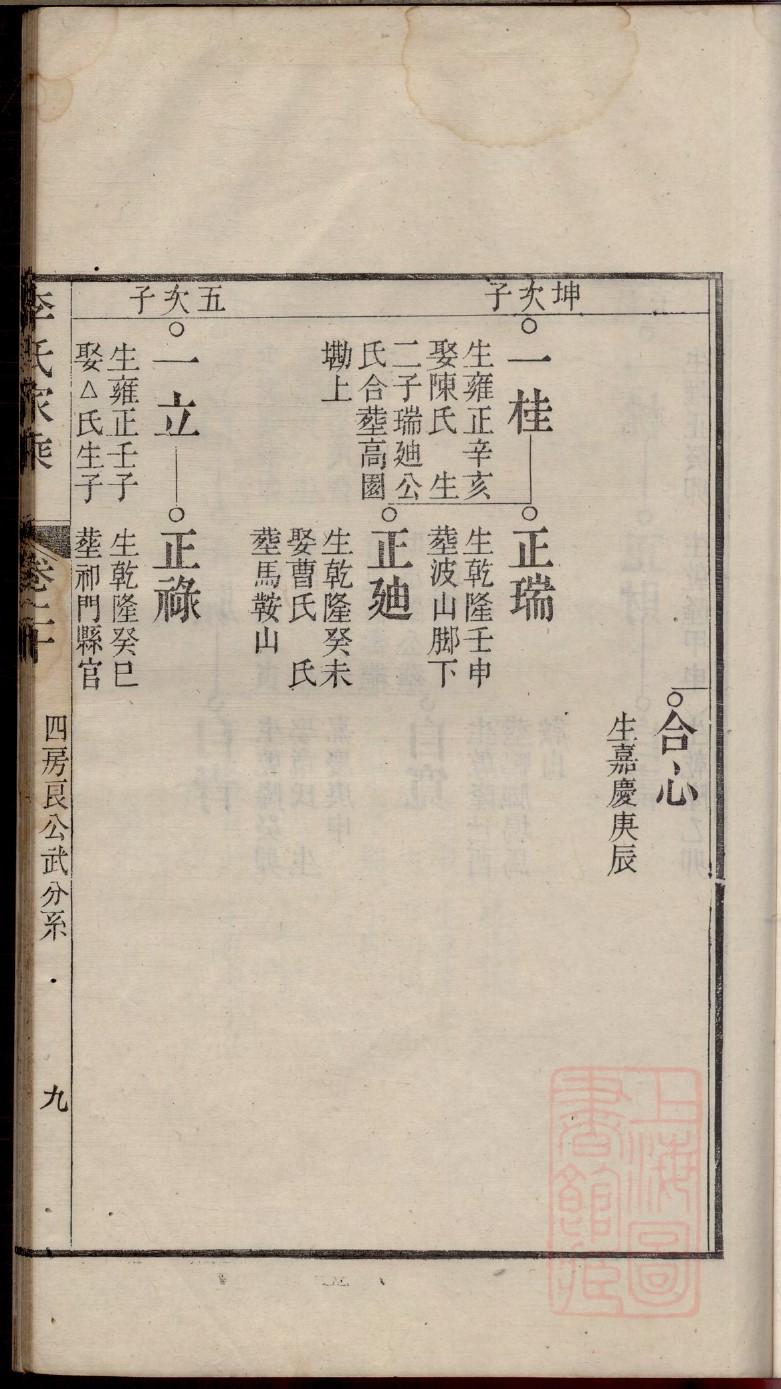 合心
生嘉慶庚辰
坤次子
一桂
生雍正辛亥
娶陳氏 生
二子瑞廸公
氏合塟高園
墈上
正瑞
生乾隆壬申
塟波山脚下
正廸
生乾隆癸未
娶曹氏 氏
塟馬鞍山
五次子
一立
生雍正壬子
娶△氏生子
正祿
生乾隆癸巳
塟祁門縣官
李氏家乘
卷二十
四房良公武分系
九
上海圖
書館藏